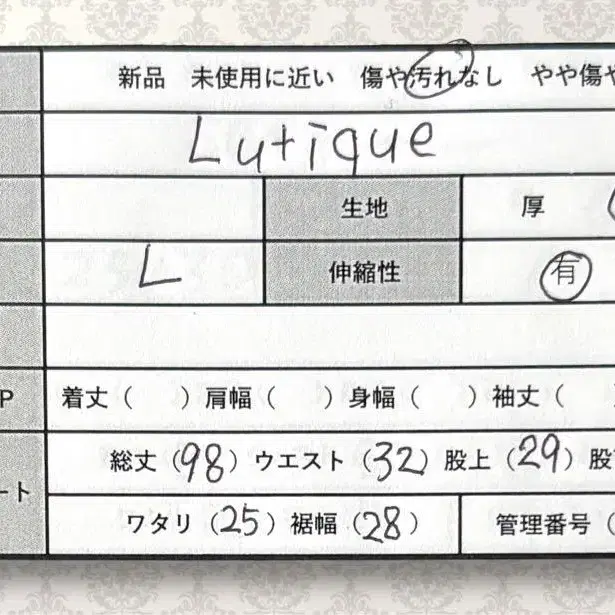 新品 未使用に近い 傷や汚れなし やや傷や
Lutique
生地 厚
L 伸縮性 有
P 着丈( )肩幅( )身幅( )袖丈(
総丈(98)ウエスト(32)股上(29)股
ート
ワタリ(25)裾幅(28) 管理番号(